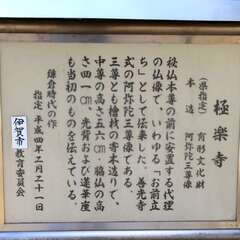 極楽寺
(県指定) 有形文化財
本造 阿弥陀三尊像
秘仏本尊の前に安置する代理
の仏像で、いわゆる「お前立
ち」として伝来した、善光寺
式の阿弥陀三尊像である。
三尊とも檜材の寄木造りで、
中尊の高さ五六㎝、脇仏の高
さ四一㎝、光背および蓮華座
も当初のものを伝えている。
鎌倉時代の作
指定 平成四年二月二十一日
伊賀市教育委員会